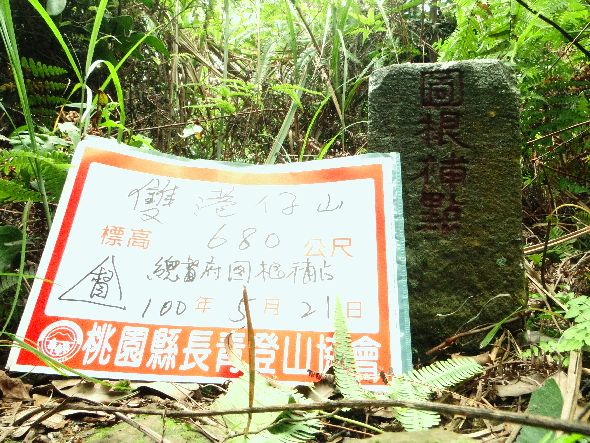 雙港仔山
標高 680 公尺
總督府圖根補点
100年5月21日
桃園縣長青登山協會
圖根補點